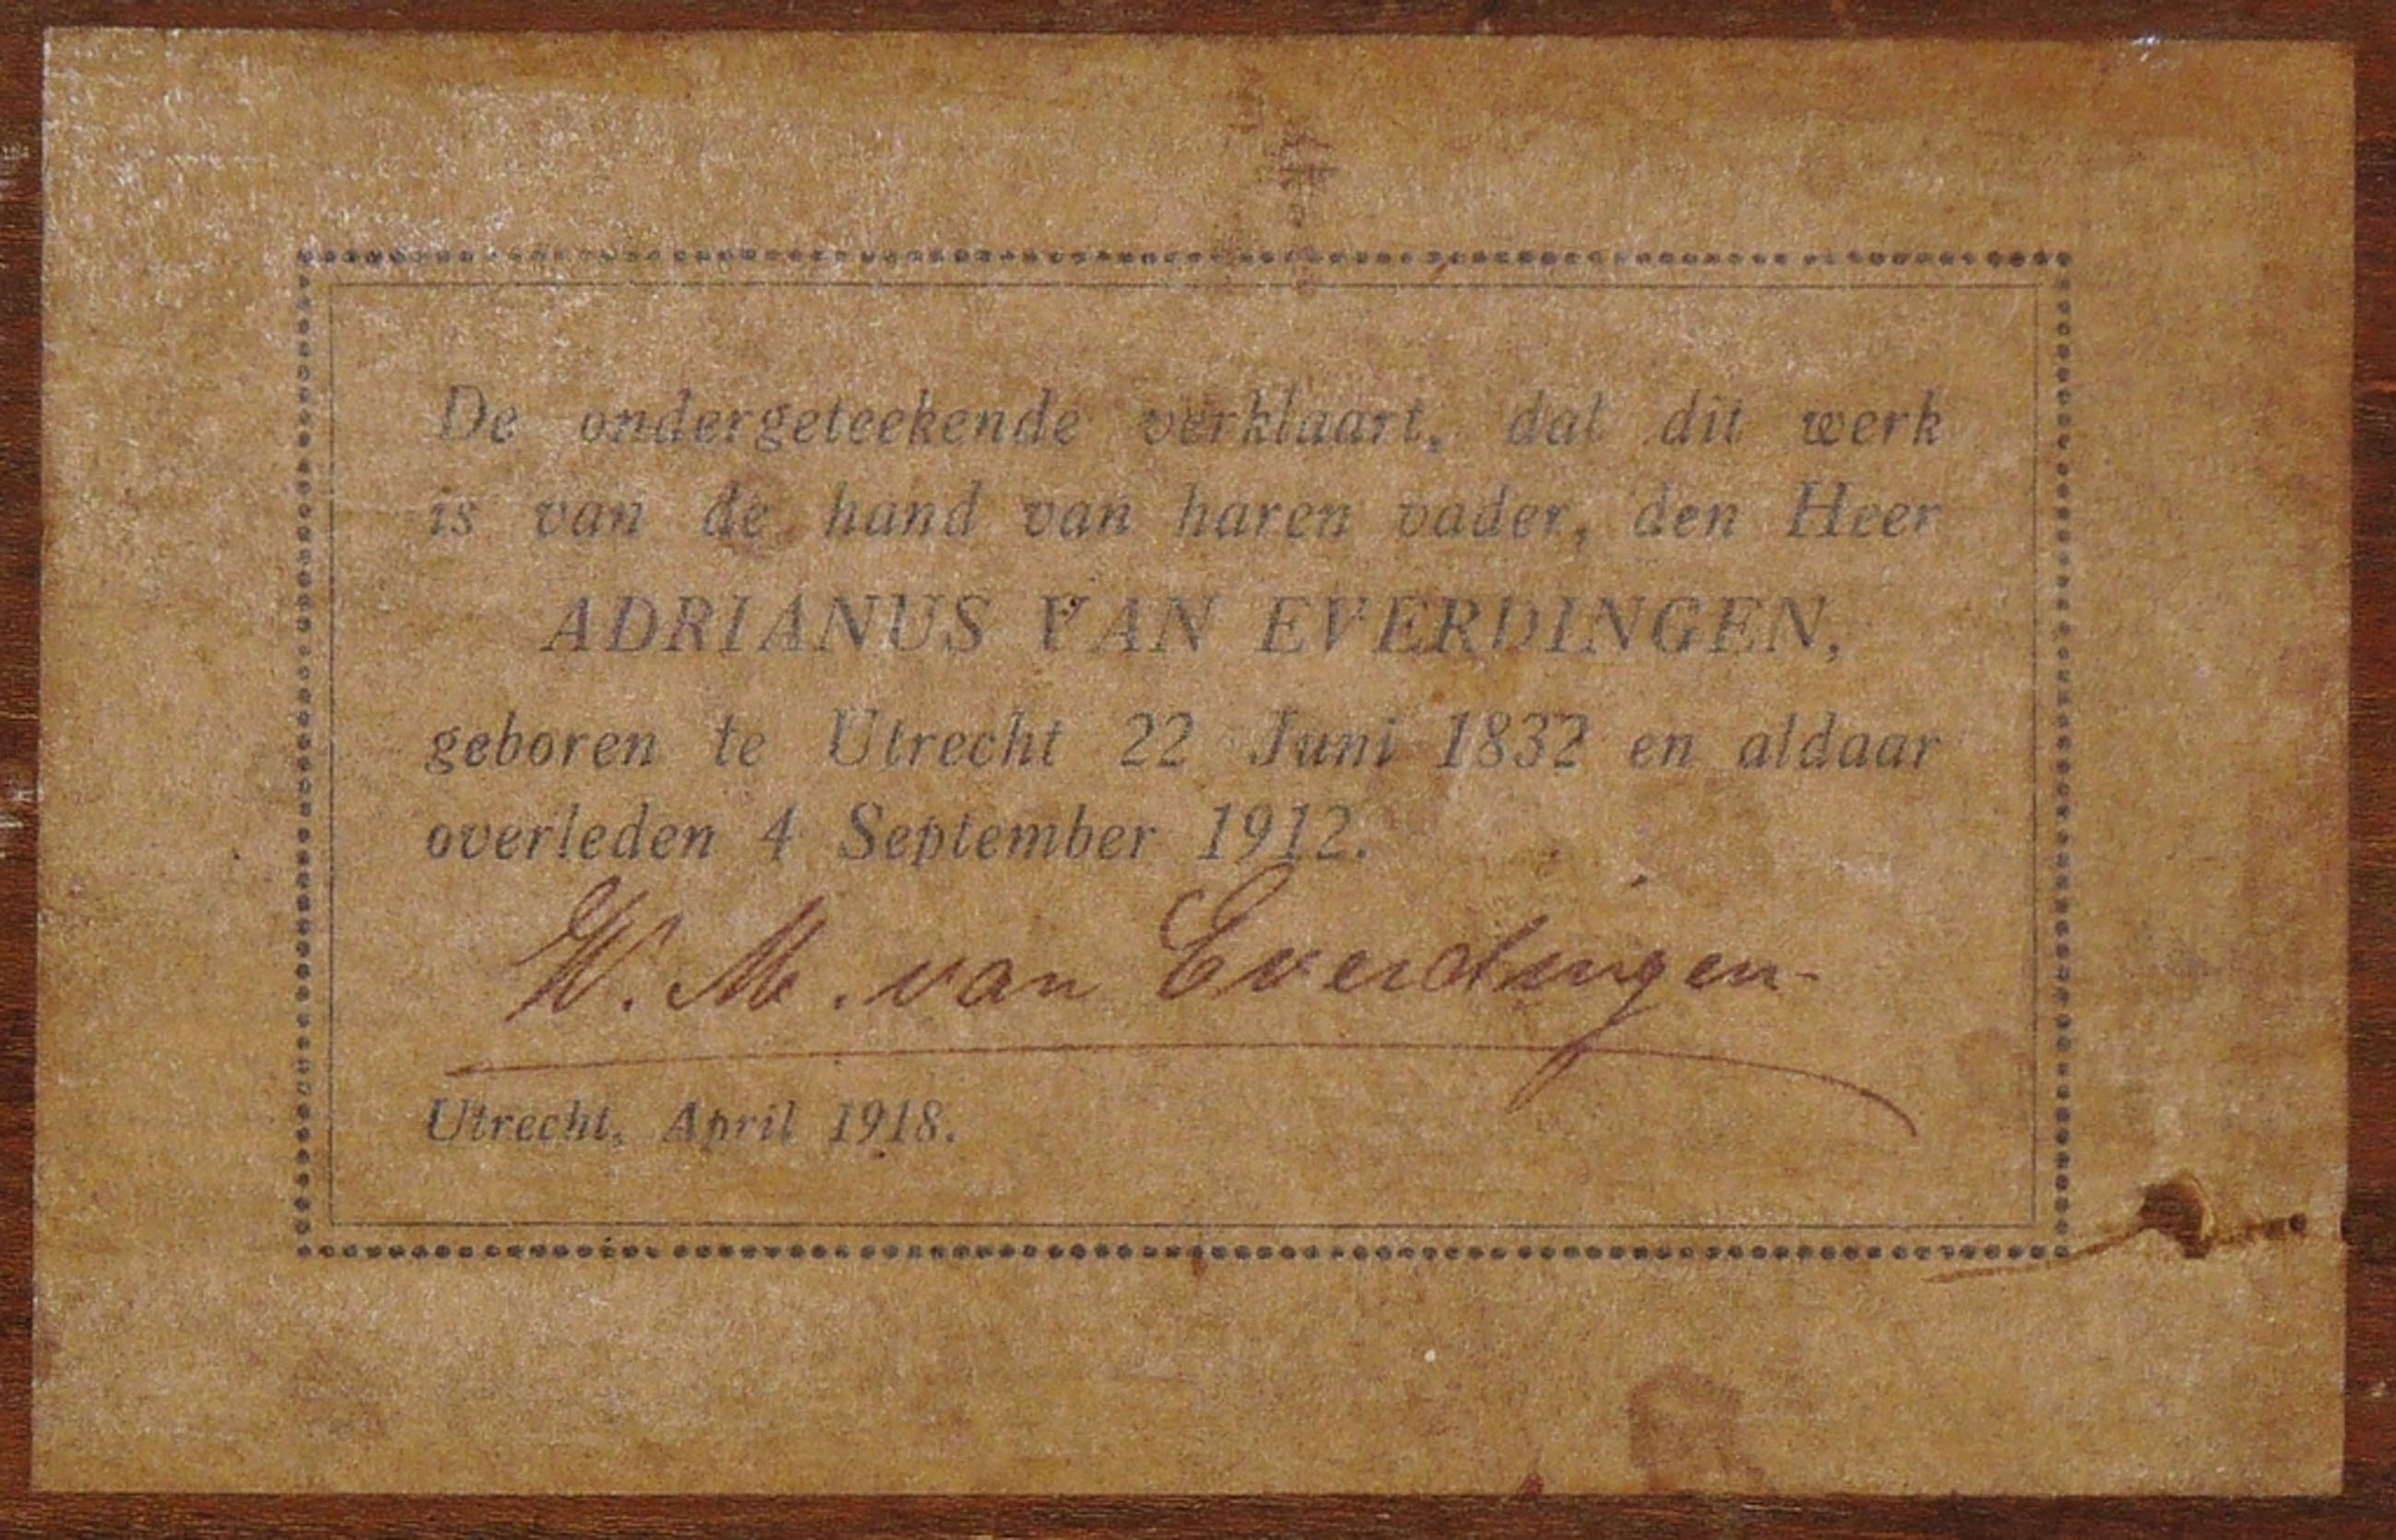 De ondergeteekende verklaart, dat dit werk
is van de hand van haren vader, den Heer
ADRIANUS VAN EVERDINGEN,
geboren te Utrecht 22 Juni 1832 en aldaar
overleden 4 September 1912.
W. M. van Everdingen
Utrecht, April 1918.